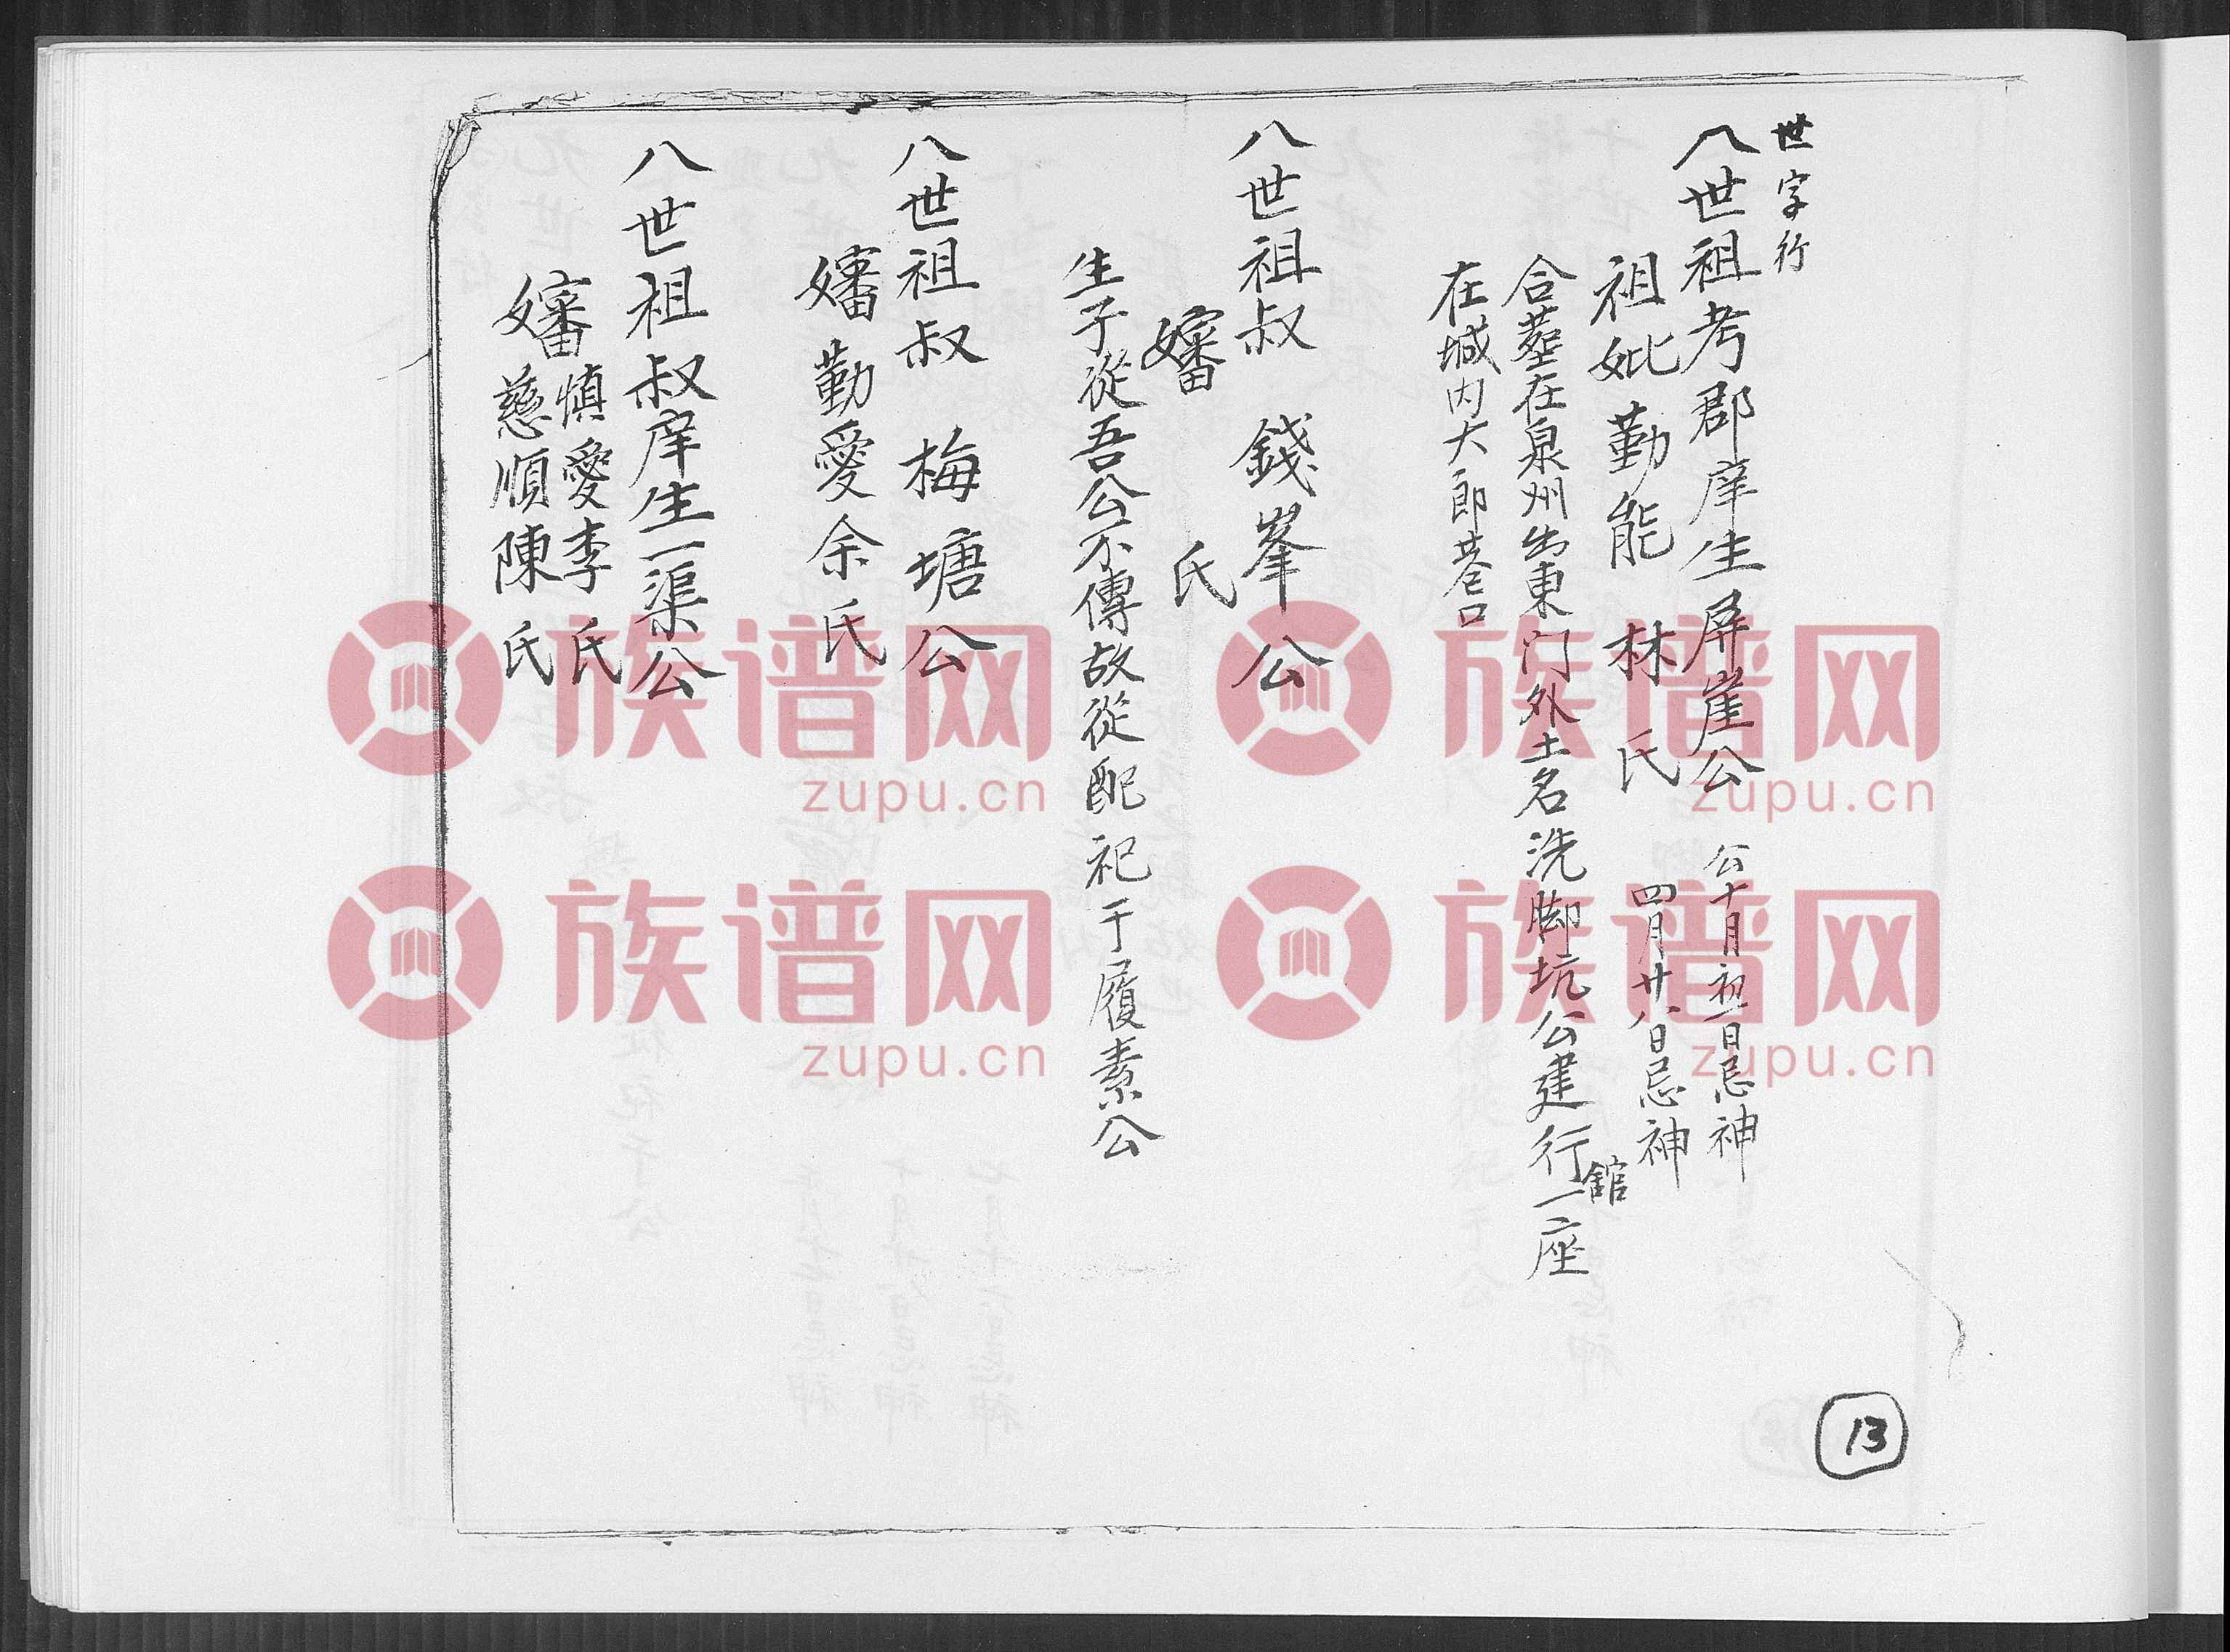 世字行
八世祖考郡庠生屏崖公 公十月初一日忌神
祖妣勤能 林氏 四月廿八日忌神
合塟在泉州出東门外土名洗脚坑公建行舘一座
在城内大郎巷口
八世祖叔 錢峯公
嬸 氏
生子從吾公不傳故從配祀于履素公
八世祖叔 梅塘公
嬸勤愛余氏
八世祖叔庠生一渠公
嬸慎愛李氏
慈順陳氏
13
族谱网
zupu.cn
族谱网
zupu.cn
族谱网
zupu.cn
族谱网
zupu.cn